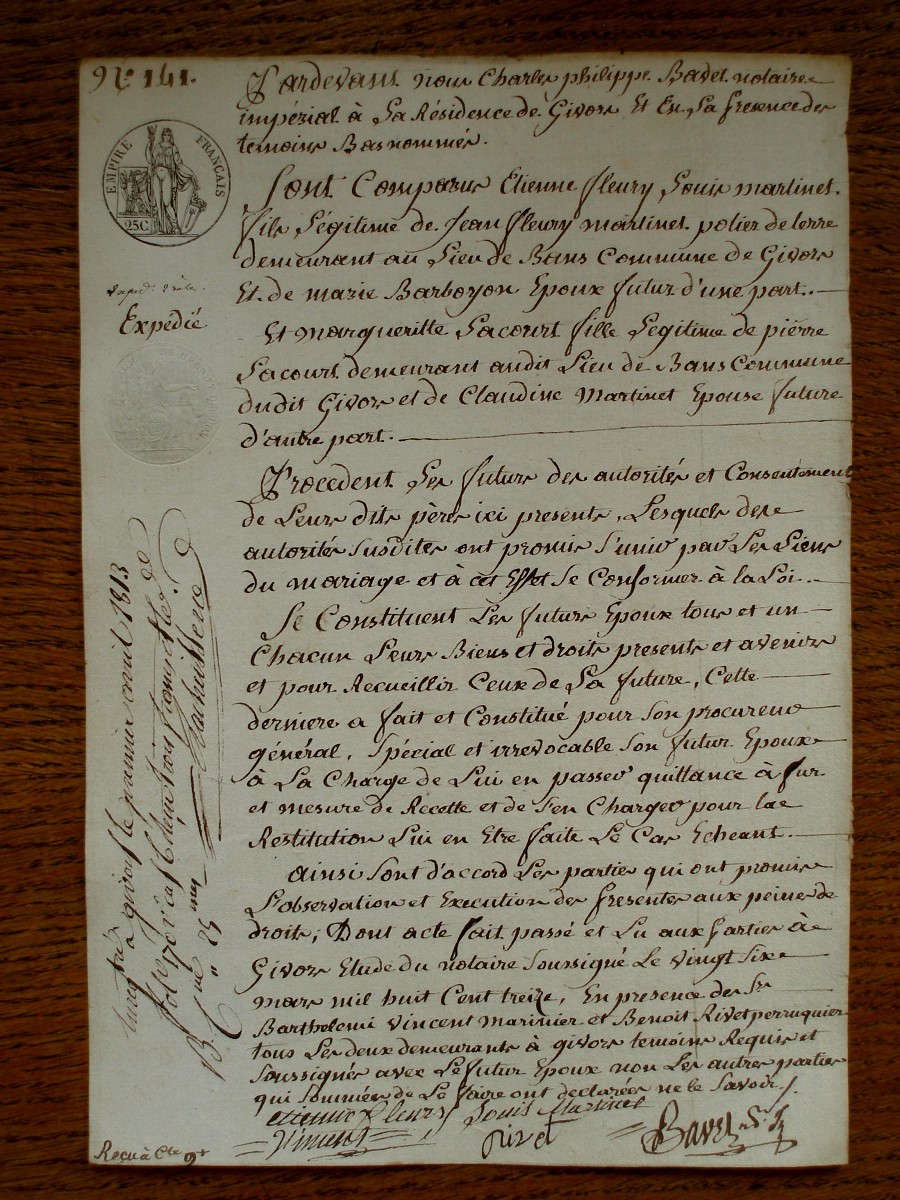 141.
Pardevant nous Charles philippe Bavet notaire
impérial à La Résidence de Givors Et En La presence des
temoins Bas nommés.
EMPIRE FRANÇAIS
25C
Expedié
Sont Comparus Etienne fleury Louis martinet.
fils Légitime de Jean fleury martinet potier de terre
demeurant au Lieu de Bans Commune de Givors
Et de marie Barboyon Epoux futur d'une part.
Et margueritte Lacourt fille Legitime de piérre
Lacourt demeurant audit Lieu de Bans Commune
dudit Givors et de Claudine Martinet Epouse future
d'autre part.
Procedent Les futurs des autorités et Consentement
de Leurs dits peres ici presents, Lesquels de
autorités Susdites ont promis S'unir par Les Liens
du mariage et à cet Effet Se Conformer à la Loi.
Se Constituent Les futurs Epoux tous et un
Chacun Leurs Biens et droits presents et avenirs
et pour Recueillir Ceux de La future, Cette
derniere a fait et Constitué pour Son procureur
général, Spécial et irrevocable Son futur Epoux
à La Charge de Lui en passer quittance à fur
et mesure de Recette et de S'en Charger pour la
Restitution Lui en Etre faite Le Cas Echeant.
ainsi Sont d'accord Les parties qui ont promis
L'observation et Execution des presentes aux peines de
droits; Dont acte fait passé et Lu aux parties à
Givors Etude du notaire Soussigné Le vingt Six
mars mil huit Cent treize, En presence des Srs
Barthelemi vincent marinier et Benoit Rivet perruquier
tous Les deux demeurants à givors temoins Requis et
Soussignés avec Le futur Epoux non Les autres parties
qui Sommées de Le faire ont declarées ne le Savoir.
etienne fleury Louis Martinet
Vincent
rivet
Bavet
à givors le premier avril 1813
Reçu à